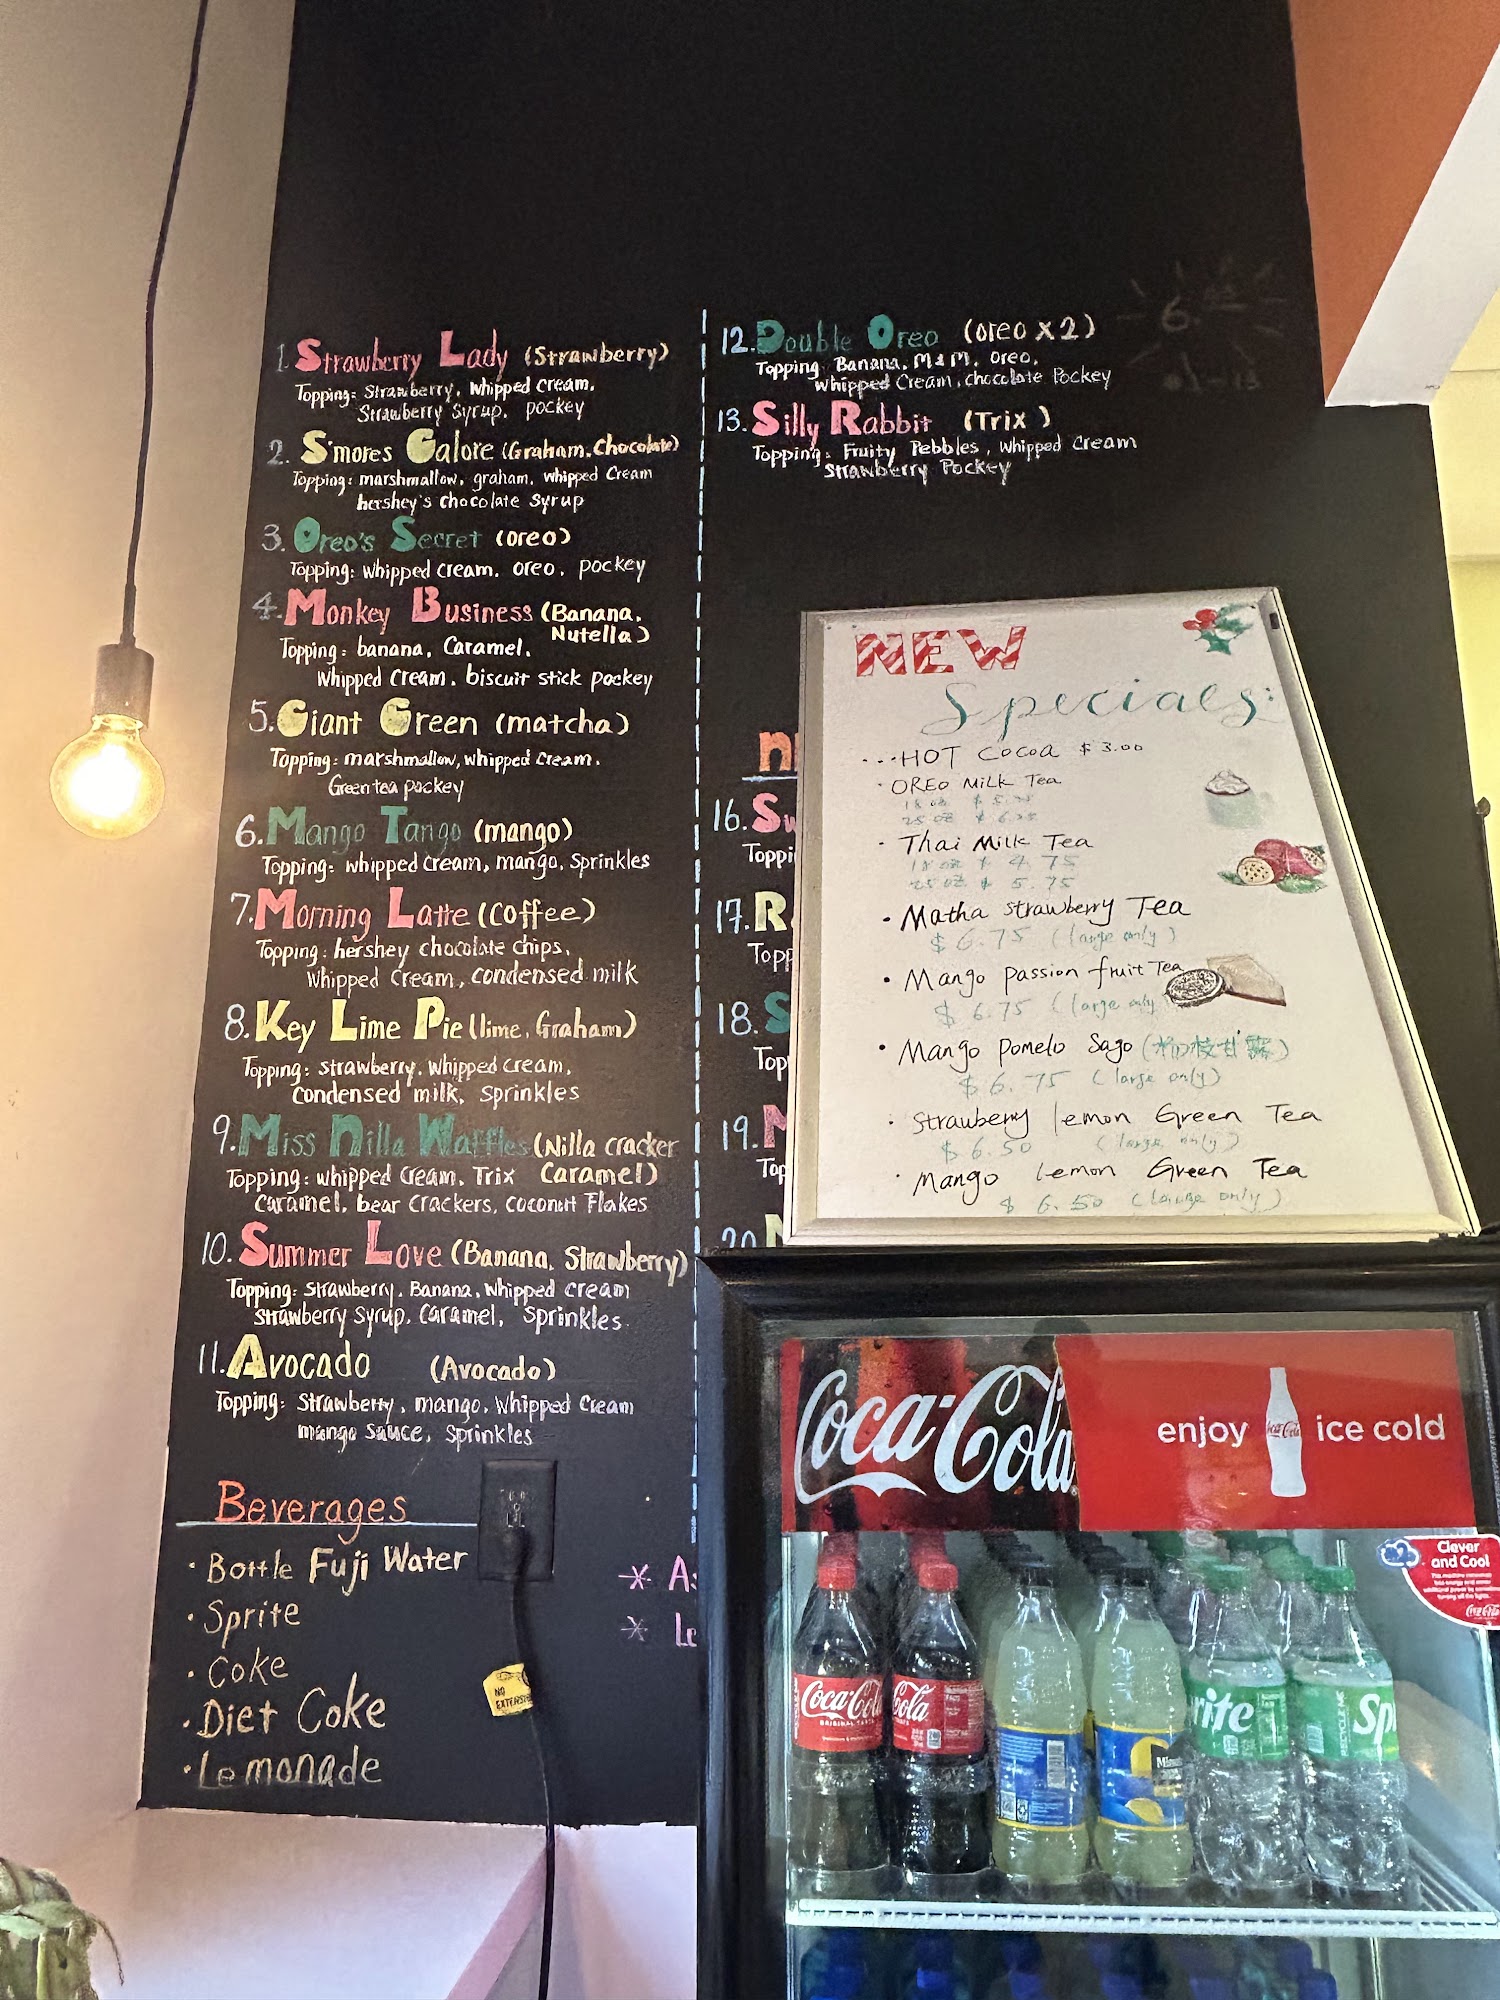 1. Strawberry Lady (Strawberry)
Topping: Strawberry, whipped cream,
Strawberry Syrup, pockey
2. S'mores Galore (Graham, Chocolate)
Topping: marshmallow, graham, whipped Cream
hershey's chocolate syrup
3. Oreo's Secret (oreo)
Topping: whipped cream, oreo, pockey
4. Monkey Business (Banana,
Nutella)
Topping: banana, Caramel,
Whipped Cream, biscuit stick pockey
5. Giant Green (matcha)
Topping: marshmallow, whipped Cream,
Green tea pockey
6. Mango Tango (mango)
Topping: whipped cream, mango, Sprinkles
7. Morning Latte (Coffee)
Topping: hershey chocolate chips,
Whipped Cream, condensed milk
8. Key Lime Pie (lime, Graham)
Topping: strawberry, whipped cream,
Condensed milk, sprinkles
9. Miss Nilla Waffles (Nilla cracker
Caramel)
Topping: whipped cream, Trix
Caramel, bear crackers, coconut Flakes
10. Summer Love (Banana, Strawberry)
Topping: Strawberry, Banana, whipped cream
Strawberry Syrup, Caramel, Sprinkles.
11. Avocado (Avocado)
Topping: Strawberry, mango, whipped Cream
mango sauce, Sprinkles
Beverages
· Bottle Fuji Water
· Sprite
· Coke
· Diet Coke
· Lemonade
NO
12. Double Oreo (oreo x 2)
Topping: Banana, M&M, oreo,
whipped Cream, chocolate Pockey
13. Silly Rabbit (Trix)
Topping: Fruity Pebbles, whipped Cream
Strawberry Pockey
6.
16. Sw
Toppi
17. R
Topp
18. S
Top
19. M
Top
20.
* A
* Le
NEW
Specials:
···HOT Cocoa $3.00
· OREO Milk Tea
18 oz $ 5.75
25 oz $ 6.75
· Thai Milk Tea
18 oz $ 4.75
25 oz $ 5.75
· Matha strawberry Tea
$ 6.75 (large only)
· Mango passion fruit Tea
$ 6.75 (large only
· Mango pomelo Sago (杨枝甘露)
$ 6.75 (large only)
· Strawberry lemon Green Tea
$ 6.50 (large only)
· Mango Lemon Green Tea
$ 6.50 (large only)
Coca-Cola
enjoy Coca-Cola ice cold
Clever
and Cool
Coca-Cola
Coca-Cola
ORIGINAL TASTE
Cola
rite
Sp